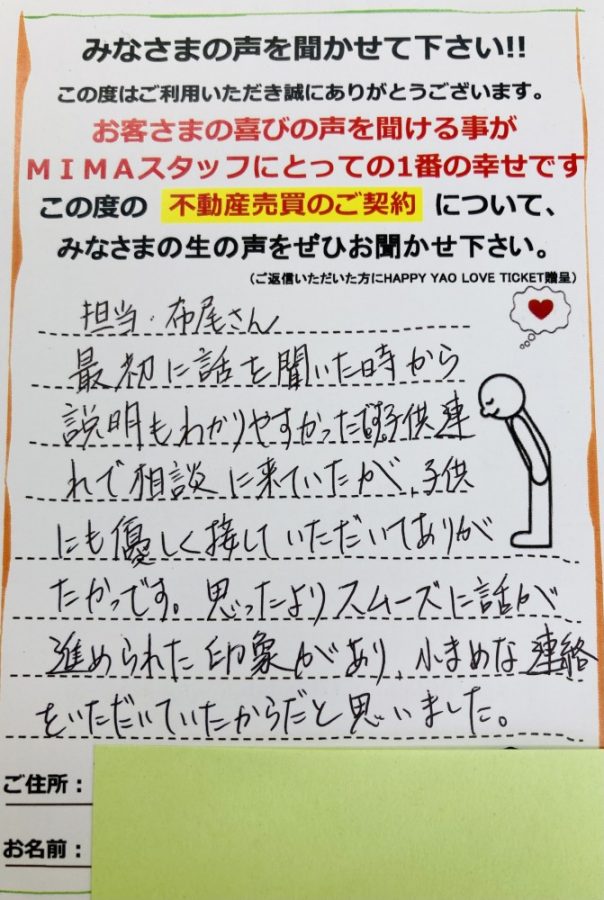 みなさまの声を聞かせて下さい!!
この度はご利用いただき誠にありがとうございます。
お客さまの喜びの声を聞ける事が
MIMAスタッフにとっての1番の幸せです
この度の 不動産売買のご契約 について、
みなさまの生の声をぜひお聞かせ下さい。
(ご返信いただいた方にHAPPY YAO LOVE TICKET贈呈)
担当・布尾さん
最初に話を聞いた時から
説明もわかりやすかったです。子供連
れで相談に来ていたが、子供
にも優しく接していただいてありが
たかっです。思ったよりスムーズに話が
進められた印象があり、小まめな連絡
をいただいていたからだと思いました。
ご住所：
お名前：